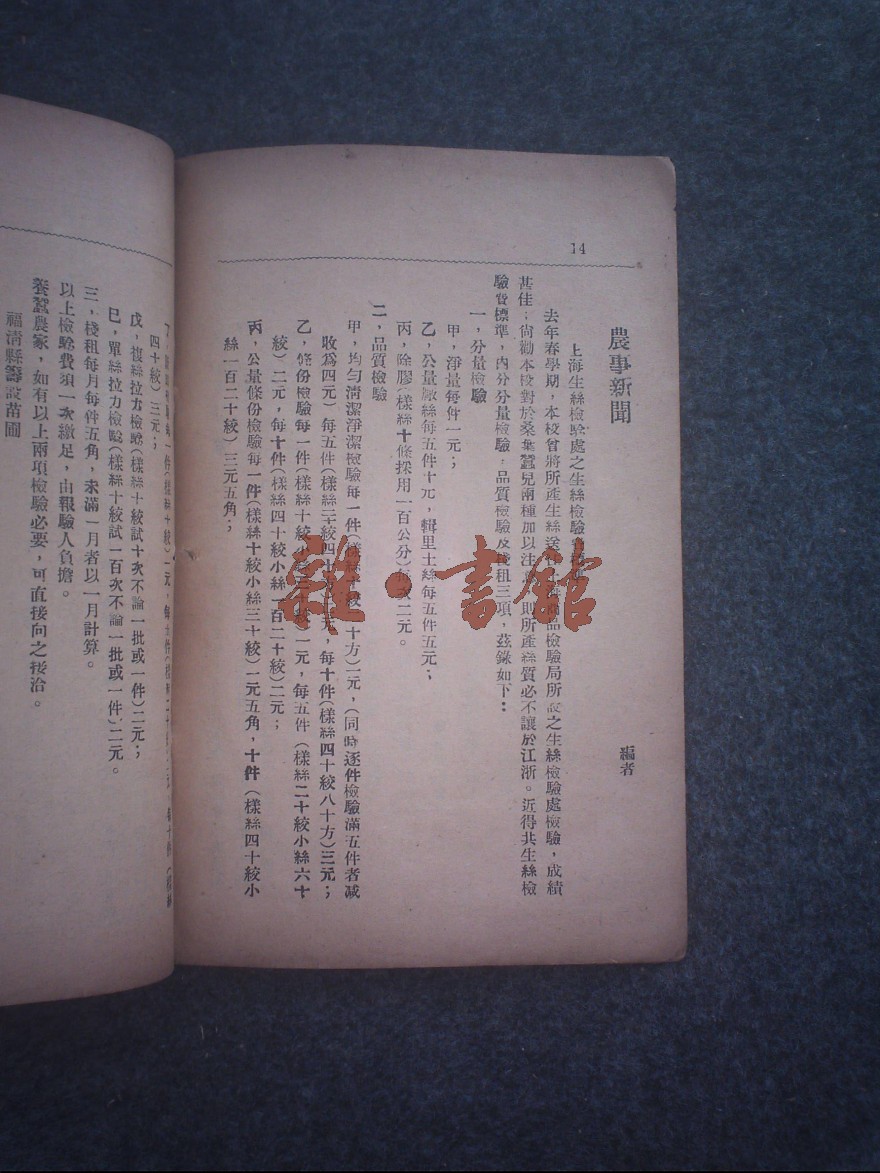 14
農事新聞
編者
上海生絲檢驗處之生絲檢驗
去年春學期，本校曾將所產生絲送 品檢驗局所設之生絲檢驗處檢驗，成績
甚佳；尙勸本校對於桑葉蠶兒兩種加以注 則所產絲質必不讓於江浙。近得其生絲檢
驗費標準，內分分量檢驗，品質檢驗及棧租三項，茲錄如下：
一，分量檢驗
甲，淨量每件一元；
乙，公量廠絲每五件十元，輯里土絲每五件五元；
丙，除膠（樣絲十條採用一百公分）每次二元。
二，品質檢驗
甲，均勻清潔淨潔檢驗每一件（樣絲 十方）二元，（同時逐件檢驗滿五件者減
收爲四元）每五件（樣絲二十絞四十 元，每十件（樣絲四十絞八十方）三元；
乙，條份檢驗每一件（樣絲十絞小絲三十絞）一元，每五件（樣絲二十絞小絲六十
絞）二元，每十件（樣絲四十絞小絲一百二十絞）二元；
丙，公量條份檢驗每一件（樣絲十絞小絲三十絞）一元五角，十件（樣絲四十絞小
絲一百二十絞）三元五角；
件（樣絲十絞）一元，每 件 每十件
四十絞）三元；
戊，複絲拉力檢驗（樣絲十絞試十次不論一批或一件）二元；
巳，單絲拉力檢驗（樣絲十絞試一百次不論一批或一件）二元。
三，棧租每月每件五角，未滿一月者以一月計算。
以上檢驗費須一次繳足，由報驗人負擔。
養蠶農家，如有以上兩項檢驗必要，可直接向之接洽。
福清縣籌設苗圃
雜·書館